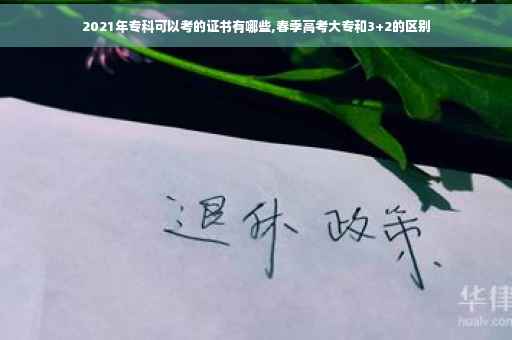 2021年专科可以考的证书有哪些,春季高考大专和3+2的区别
退休 政策
华律
hualv.com